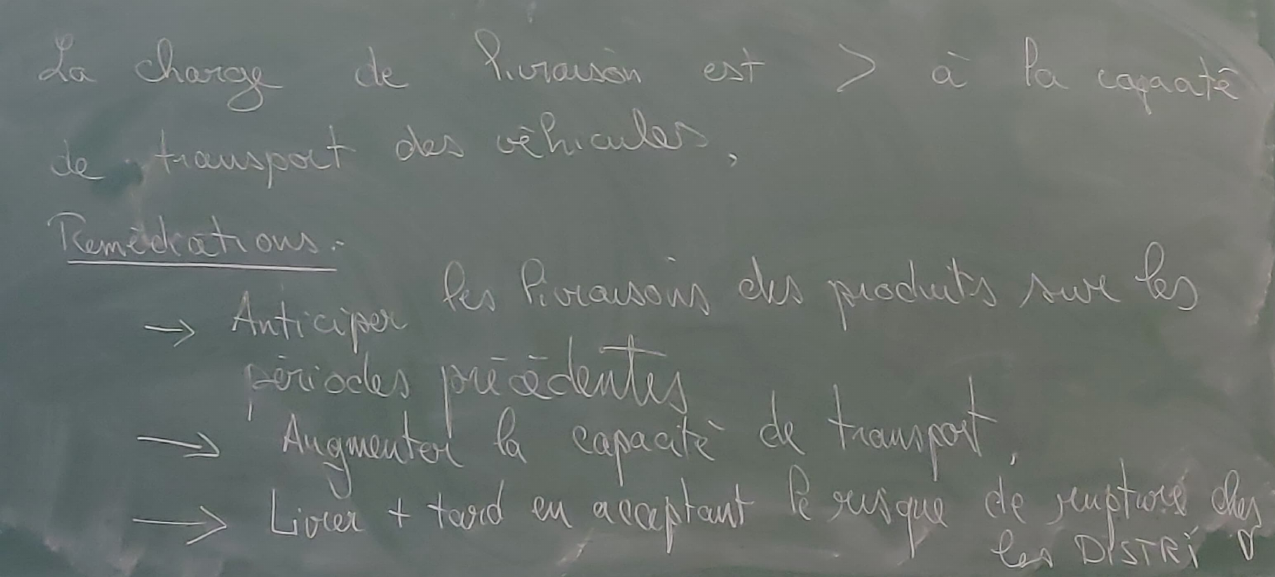 La charge de livraison est > à la capacité
de transport des véhicules,
Remédiations :-
→ Anticiper les livraisons des produits sur les
périodes précédentes
→ Augmenter la capacité de transport,
→ Livrer + tard en acceptant le risque de rupture chez
les DISTRI